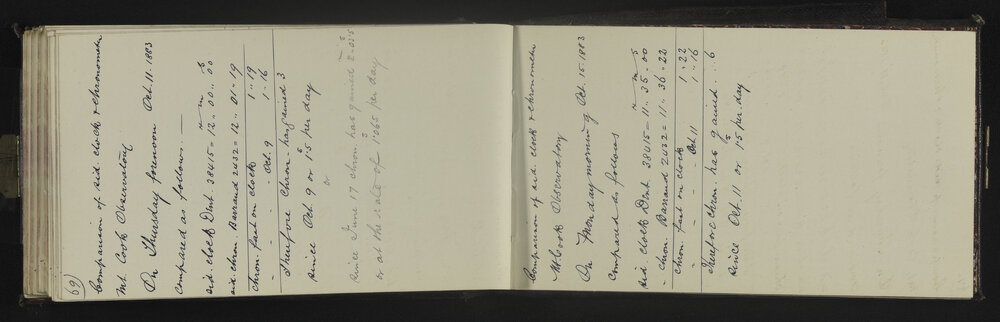 69)
Comparison of sid. clock & chronometer
Mt. Cook Observatory
On Thursday forenoon Oct. 11. 1883
compared as follows —
h m s
sid. clock Dent 38415 = 12 .. 00 .. 00
sid. chron. Barraud 2432 = 12 .. 01 .. 19
chron. fast on clock 1 .. 19
" - - - Oct. 9 1 .. 16
Therefore Chron. has gained 3
since Oct. 9 or 1.5 s per day
or
since June 17 chron. has gained
or at the rate of 1.065 s per day
Comparison of sid. clock & chronometer
Mt Cook Observatory
On Monday morning Oct. 15. 1883
compared as follows
h m s
sid. clock Dent. 38415 = 11 .. 35 .. 00
" chron. Barraud 2432 = 11 .. 36 .. 22
chron. fast on clock 1 .. 22
" - - - Oct 11 1 .. 16
Therefore chron. has gained ... 6
since Oct. 11 or 1.5 s per day